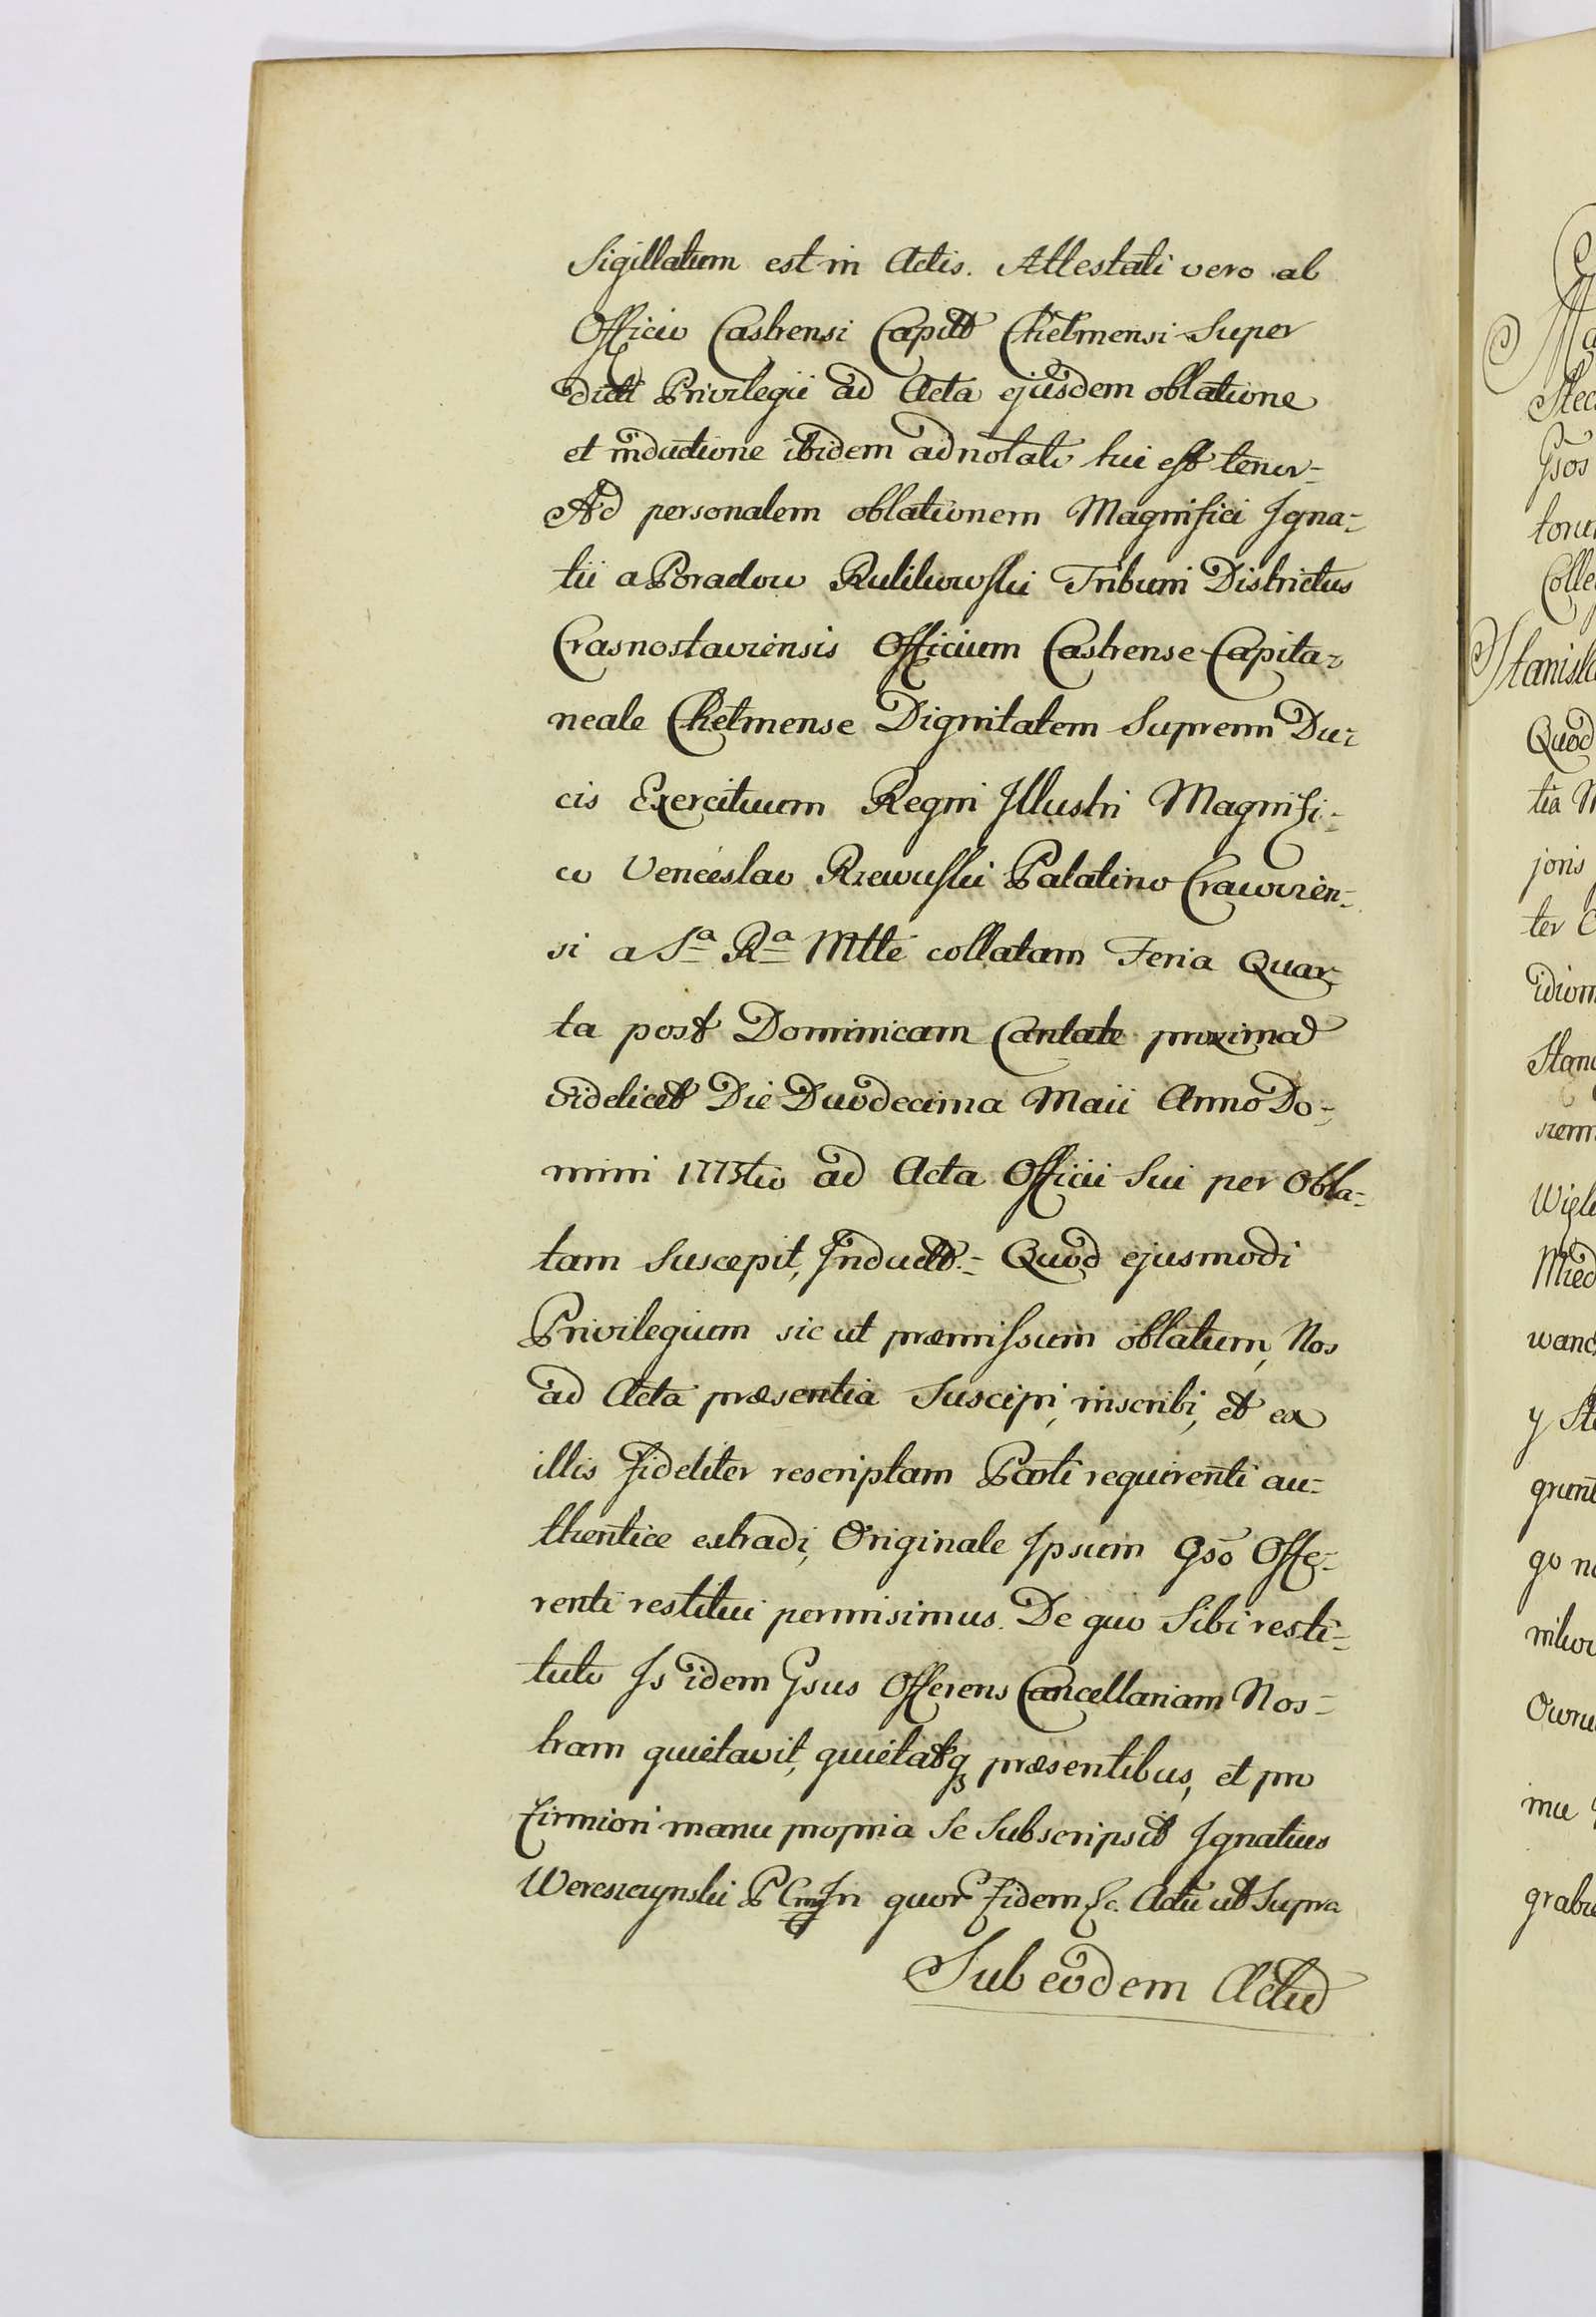 Sigillatum est in Actis. Attestati vero ab
Officio Castrensi Capitt Chełmensi Super
dicti Privilegii ad Acta ejusdem oblatione
et inductione ibidem adnotati hui est tenor-
Ad personalem oblationem Magnifici Igna-
tii a Poradow Kulikowski Tribuni Districtus
Crasnostaviensis Officium Castrense Capita-
neale Chełmense Dignitatem Supremi Du-
cis Exercituum Regni Illustri Magnifi-
co Venceslao Rzewuski Palatino Cracovien-
si a Sa Ra Mtte collatam Feria Quar-
ta post Dominicam Cantate proxima
videlicet Die Duodecima Maii Anno Do-
mini 1773tio ad Acta Officii Sui per Obla-
tam Suscepit, Inductt.- Quod ejusmodi
Privilegium sic ut præmissum oblatum, Nos
ad Acta præsentia Suscipi, inscribi, et ex
illis fideliter rescriptam Parti requirenti au-
thentice extradi, Originale Ipsum Gso Offe-
renti restitui permisimus. De quo Sibi resti-
tuto Is idem Gsus Offerens Cancellariam Nos-
tram quietavit, quietatq præsentibus, et pro
firmiori manu propria Se Subscripsit Ignatius
Wereszczynski P Cmg In quor Fidem &c. Actu ut Supra
Sub eodem Actu